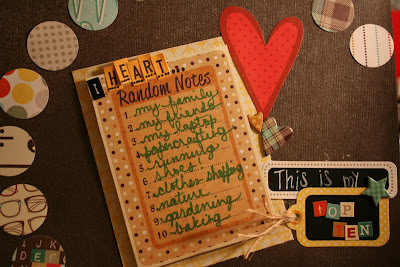 I HEART...
Random Notes
1. my family
2. my friends
3. my laptop
4. papercrafting
5. running
6. shoes!
7. clothes shopping
8. nature
9. gardening
10. baking
This is my
top
TEN
JKL
DEF